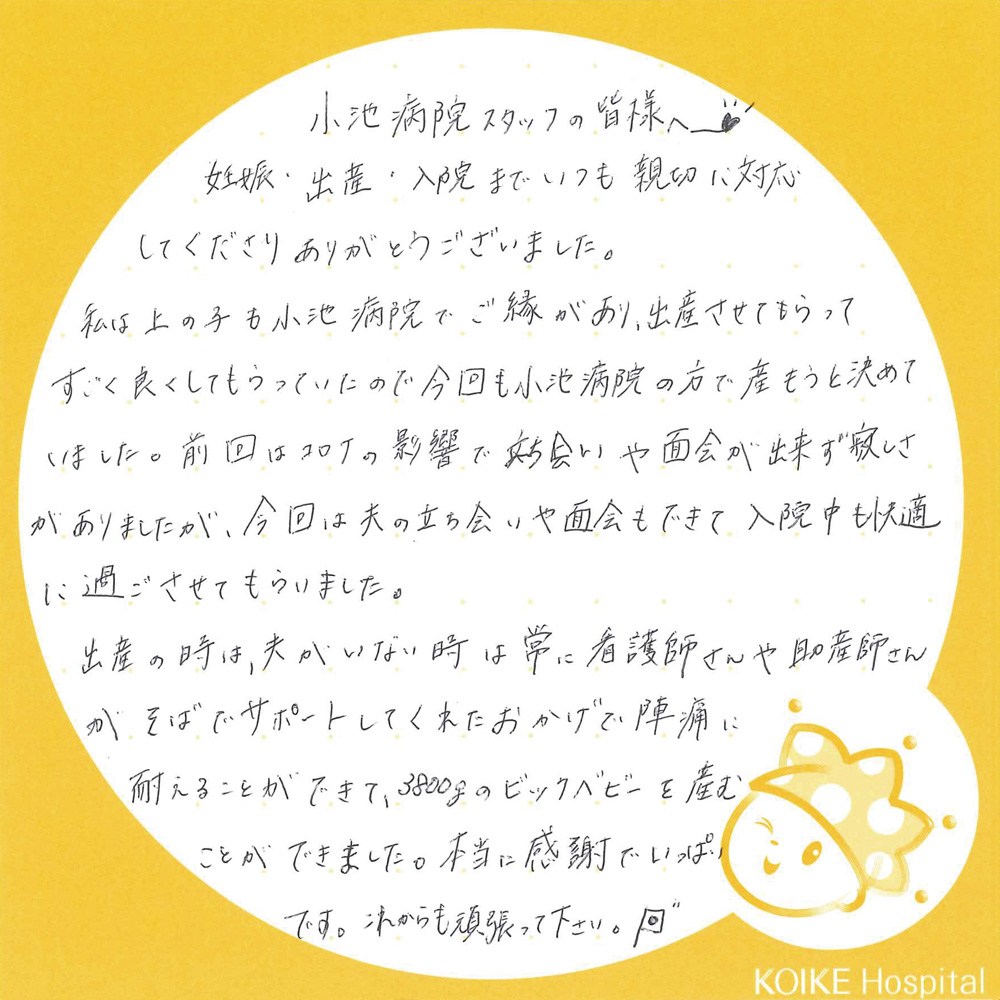 小池病院スタッフの皆様へ
妊娠・出産・入院までいつも親切に対応
してくださりありがとうございました。
私は上の子も小池病院でご縁があり、出産させてもらって
すごく良くしてもらっていたので今回も小池病院の方で産もうと決めて
いました。前回はコロナの影響で立ち会いや面会が出来ず寂しさ
がありましたが、今回は夫の立ち会いや面会もできて入院中も快適
に過ごさせてもらいました。
出産の時は、夫がいない時は常に看護師さんや助産師さん
がそばでサポートしてくれたおかげで陣痛に
耐えることができて、3800gのビックベビーを産む
ことができました。本当に感謝でいっぱい
です。これからも頑張って下さい。
KOIKE Hospital